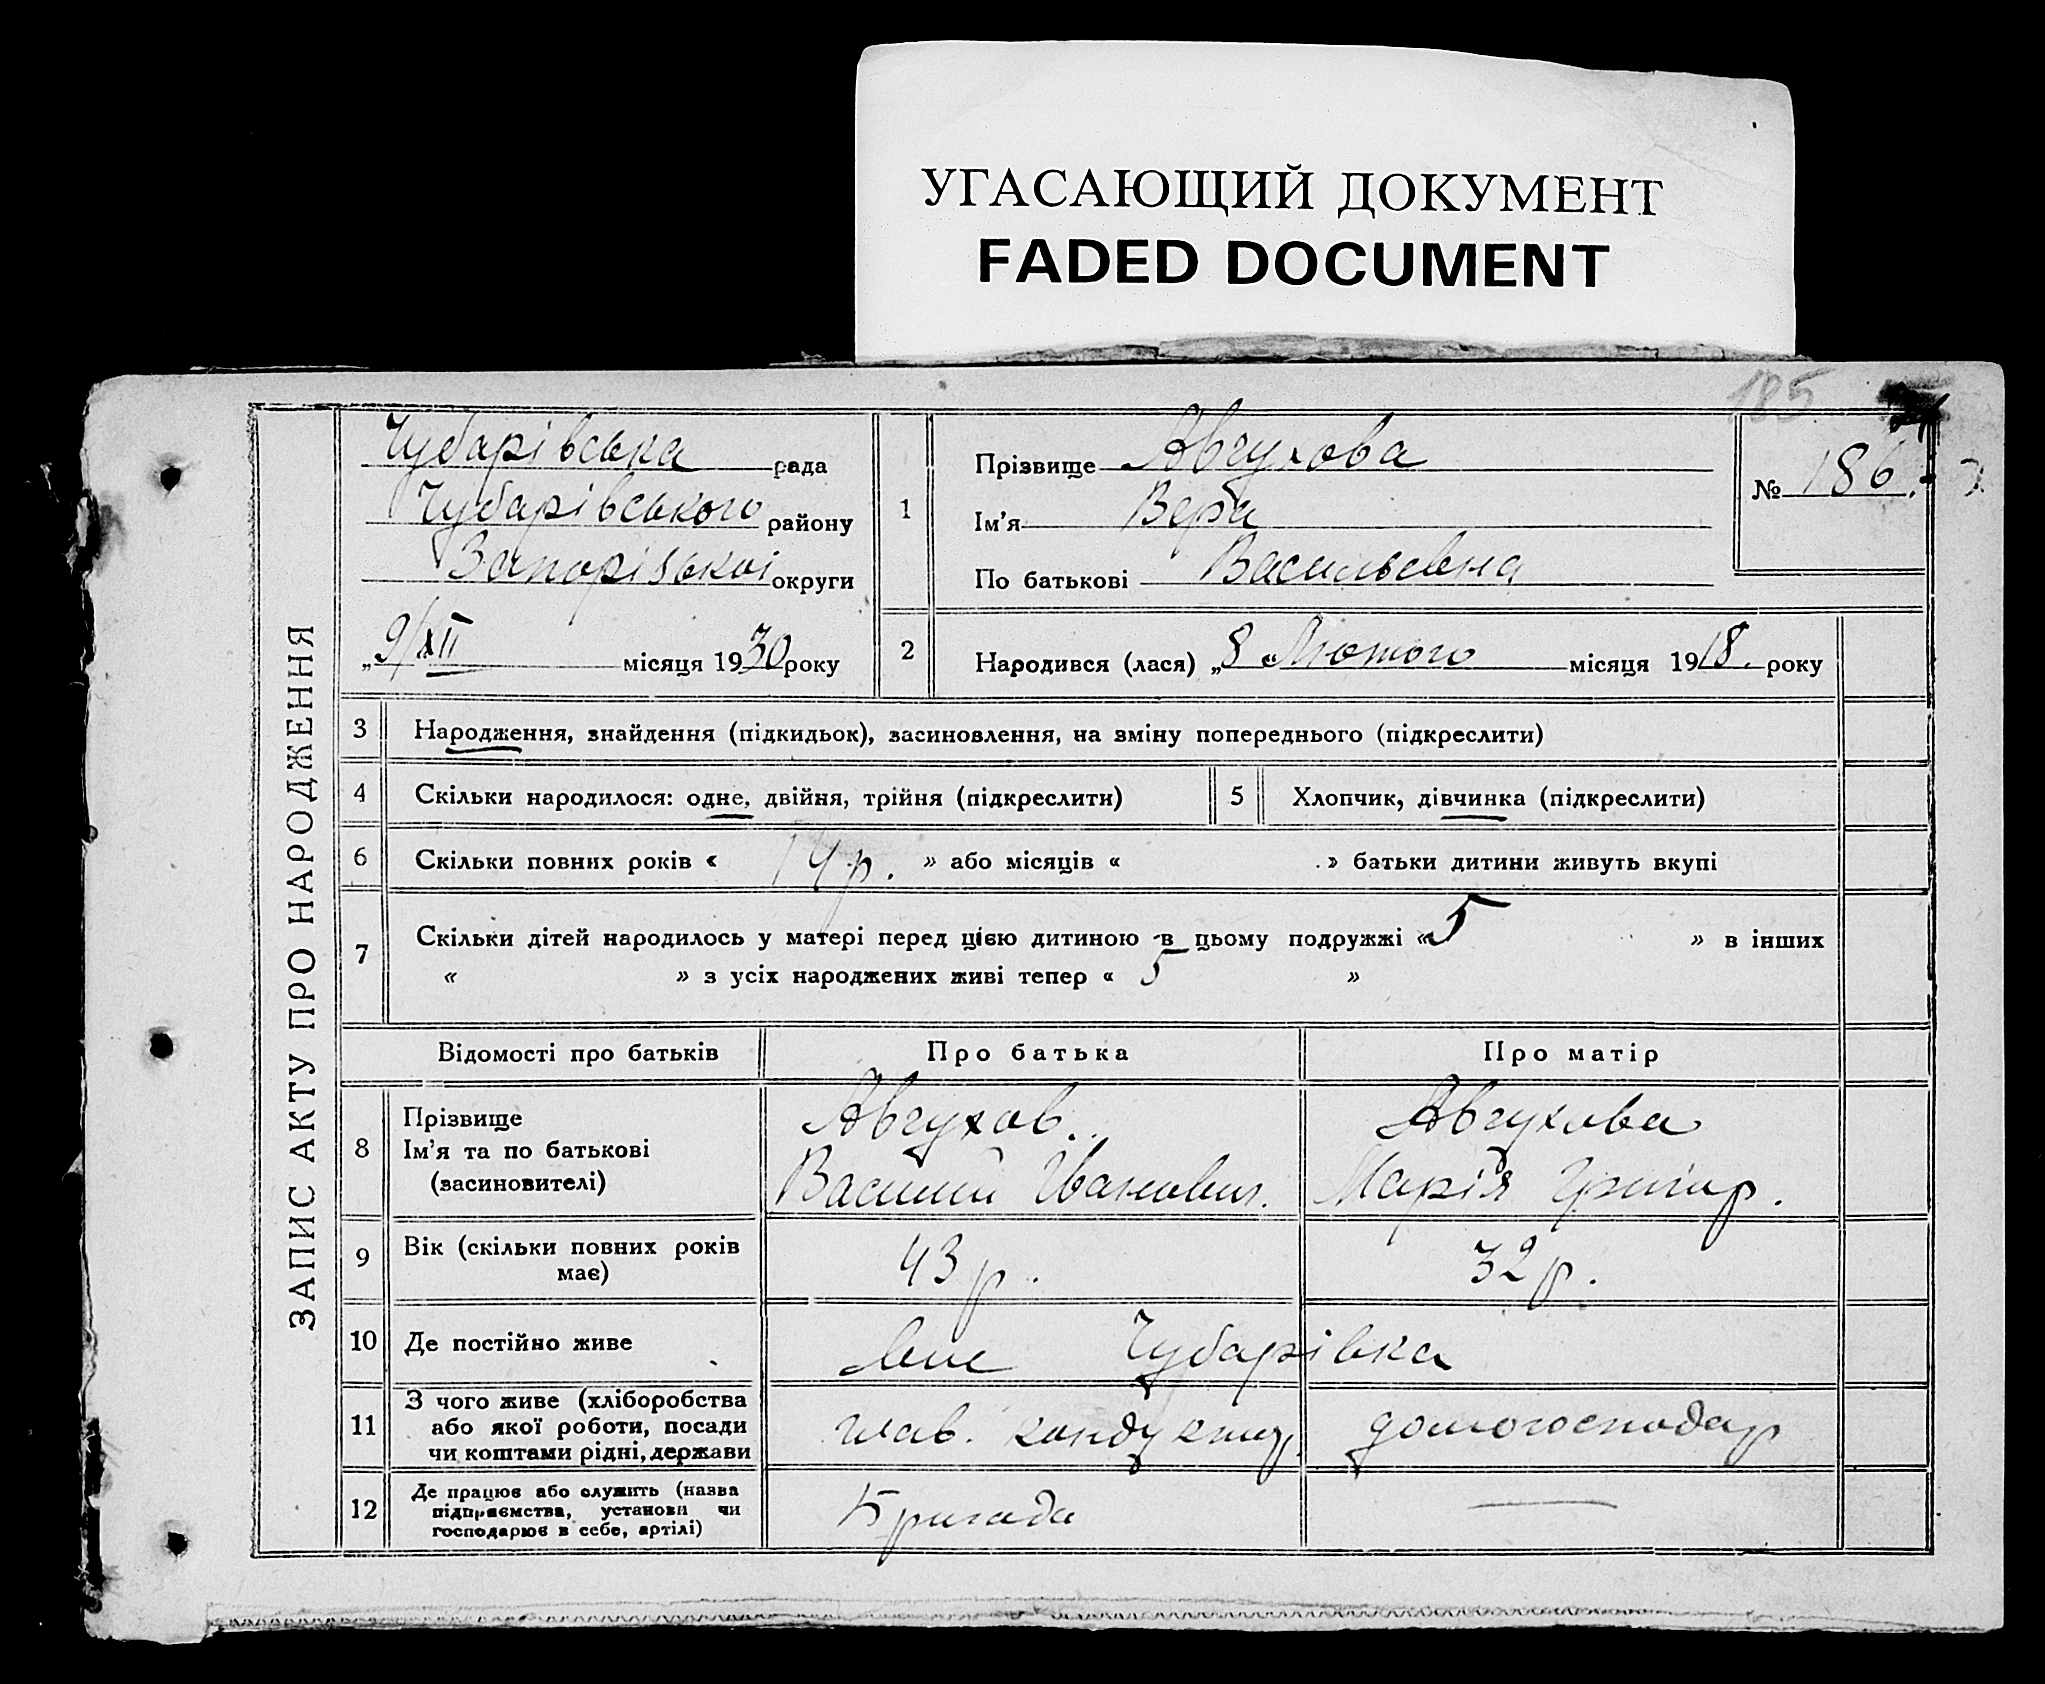 УГАСАЮЩИЙ ДОКУМЕНТ
FADED DOCUMENT
185
ЗАПИС АКТУ ПРО НАРОДЖЕННЯ
Чубарівська рада
Чубарівського району
Запорізької округи
„9/XII місяця 1930 року
1
Прізвище Авгухова
Ім’я Вера
По батькові Васильевна
№ 186.
2 Народився (лася) „8 « Лютого місяця 1918. року
3 Народження, знайдення (підкидьок), засиновлення, на зміну попереднього (підкреслити)
4 Скільки народилося: одне, двійня, трійня (підкреслити) 5 Хлопчик, дівчинка (підкреслити)
6 Скільки повних років « 14 р. » або місяців « » батьки дитини живуть вкупі
7 Скільки дітей народилось у матері перед цією дитиною в цьому подружжі « 5 » в інших
« » з усіх народжених живі тепер « 5 »
Відомості про батьків Про батька Про матір
8 Прізвище Авгухов. Авгухова
Ім’я та по батькові
(засиновителі) Василий Иванович. Марія Григор.
9 Вік (скільки повних років має) 43 р. 32 р.
10 Де постійно живе Чубарівка
11 З чого живе (хліборобства
або якої роботи, посади
чи коштами рідні, держави глав. кондуктор. домогосподар
12 Де працює або служить (назва
підприємства, установи чи
господарює в себе, артілі) Бригада —